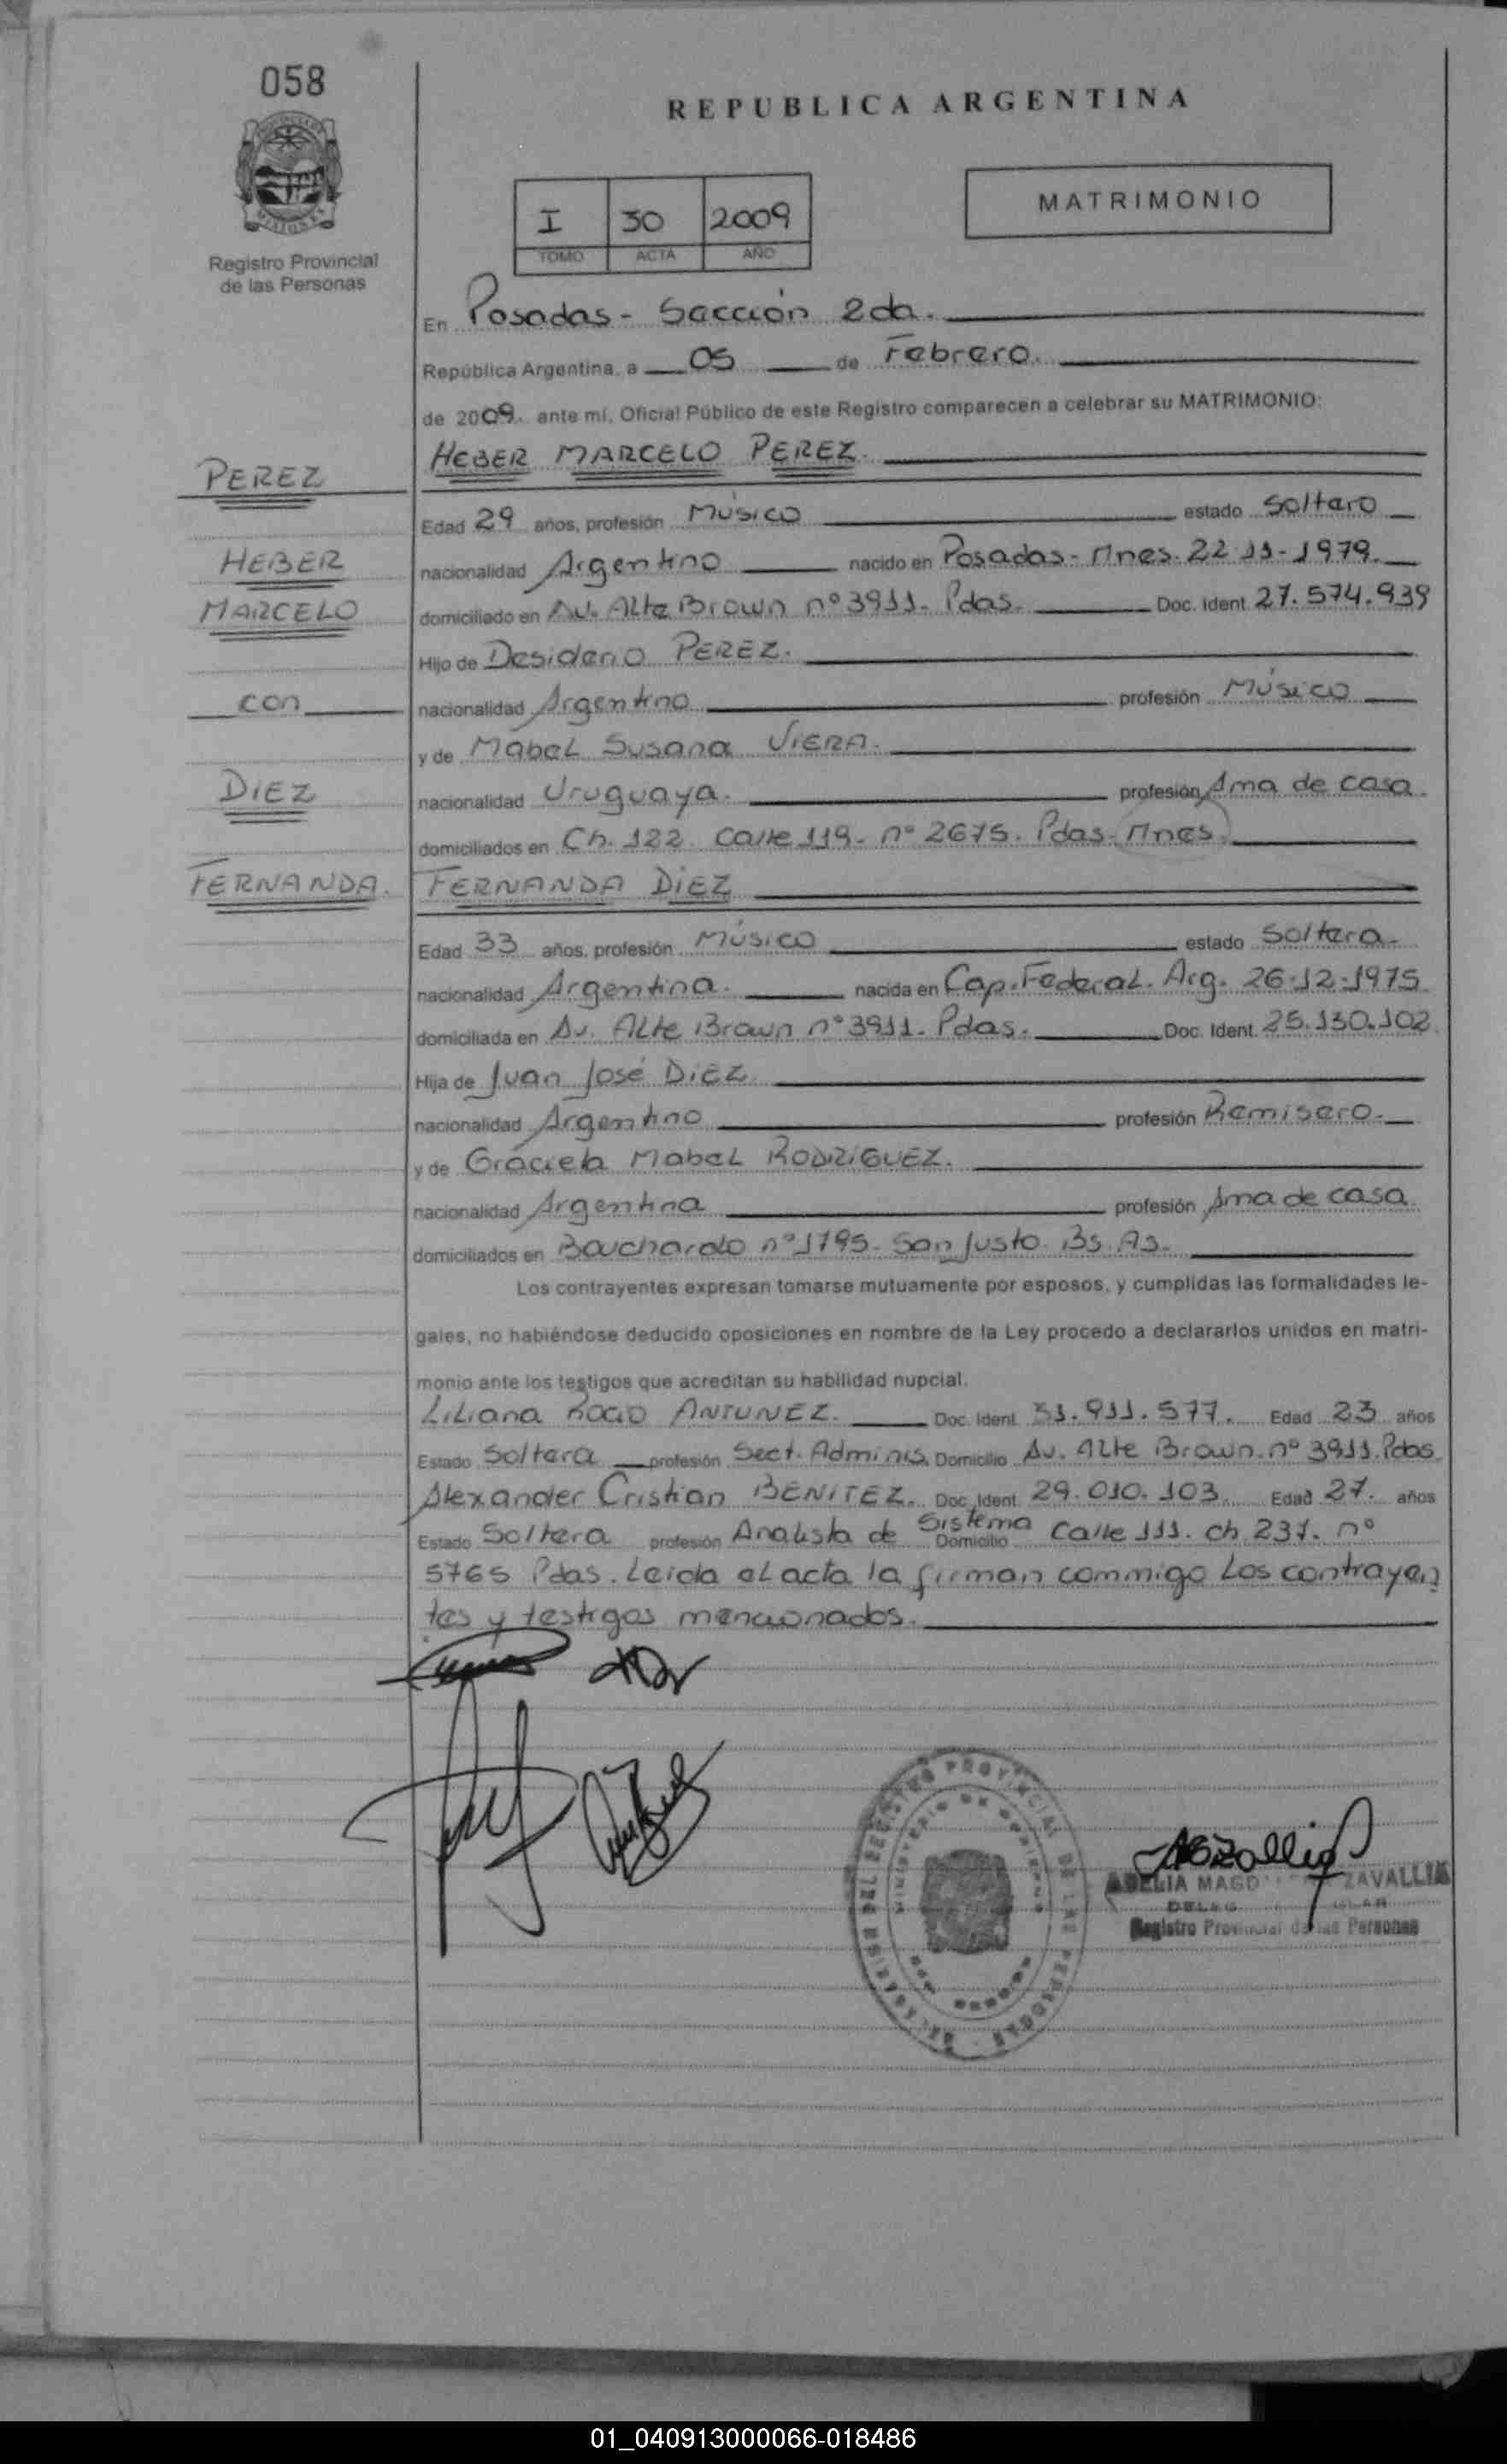 058
REPUBLICA ARGENTINA
MATRIMONIO
I 30 2009
TOMO ACTA AÑO
Registro Provincial
de las Personas
En Posadas - Sección 2da.
República Argentina, a 05 de Febrero.
de 2009. ante mí, Oficial Público de este Registro comparecen a celebrar su MATRIMONIO:
HEBER MARCELO PEREZ.
PEREZ
Edad 29 años, profesión Músico estado Soltero
HEBER
nacionalidad Argentino nacido en Posadas - Mnes. 22-11-1979.
MARCELO
domiciliado en Av. Alte Brown nº 3911. Pdas. Doc. Ident. 27.574.939
Hijo de Desiderio PEREZ.
con
nacionalidad Argentino profesión Músico
y de Mabel Susana VIERA.
DIEZ
nacionalidad Uruguaya. profesión Ama de casa.
domiciliados en Ch. 122 Calle 119 - nº 2675. Pdas - Mnes.
FERNANDA.
FERNANDA DIEZ
Edad 33 años, profesión Músico estado Soltera.
nacionalidad Argentina. nacida en Cap. Federal. Arg. 26-12-1975.
domiciliada en Av. Alte Brown nº 3911. Pdas. Doc. Ident. 25.130.102
Hija de Juan José DIEZ
nacionalidad Argentino profesión Remisero.
y de Graciela Mabel RODRIGUEZ.
nacionalidad Argentina profesión Ama de casa
domiciliados en Bouchardo nº 1795 - San Justo. Bs. As.
Los contrayentes expresan tomarse mutuamente por esposos, y cumplidas las formalidades le-
gales, no habiéndose deducido oposiciones en nombre de la Ley procedo a declararlos unidos en matri-
monio ante los testigos que acreditan su habilidad nupcial.
Liliana Rocio ANTUNEZ. Doc. Ident. 31.911.577. Edad 23 años
Estado Soltera profesión Sect. Adminis. Domicilio Av. Alte Brown. nº 3911. Pdas.
Alexander Cristian BENITEZ. Doc. Ident. 29.010.103 Edad 27. años
Estado Soltera profesión Analista de Sistema Domicilio Calle 111. ch 237. nº
5765 Pdas. Leida el acta la firman commigo los contrayen
tes y testigos mencionados.
REGISTRO PROVINCIAL DE LAS PERSONAS
MINISTERIO DE GOBIERNO
ADELIA MAGD ZAVALLIA
Registro Provincial de las Personas
01_040913000066-018486